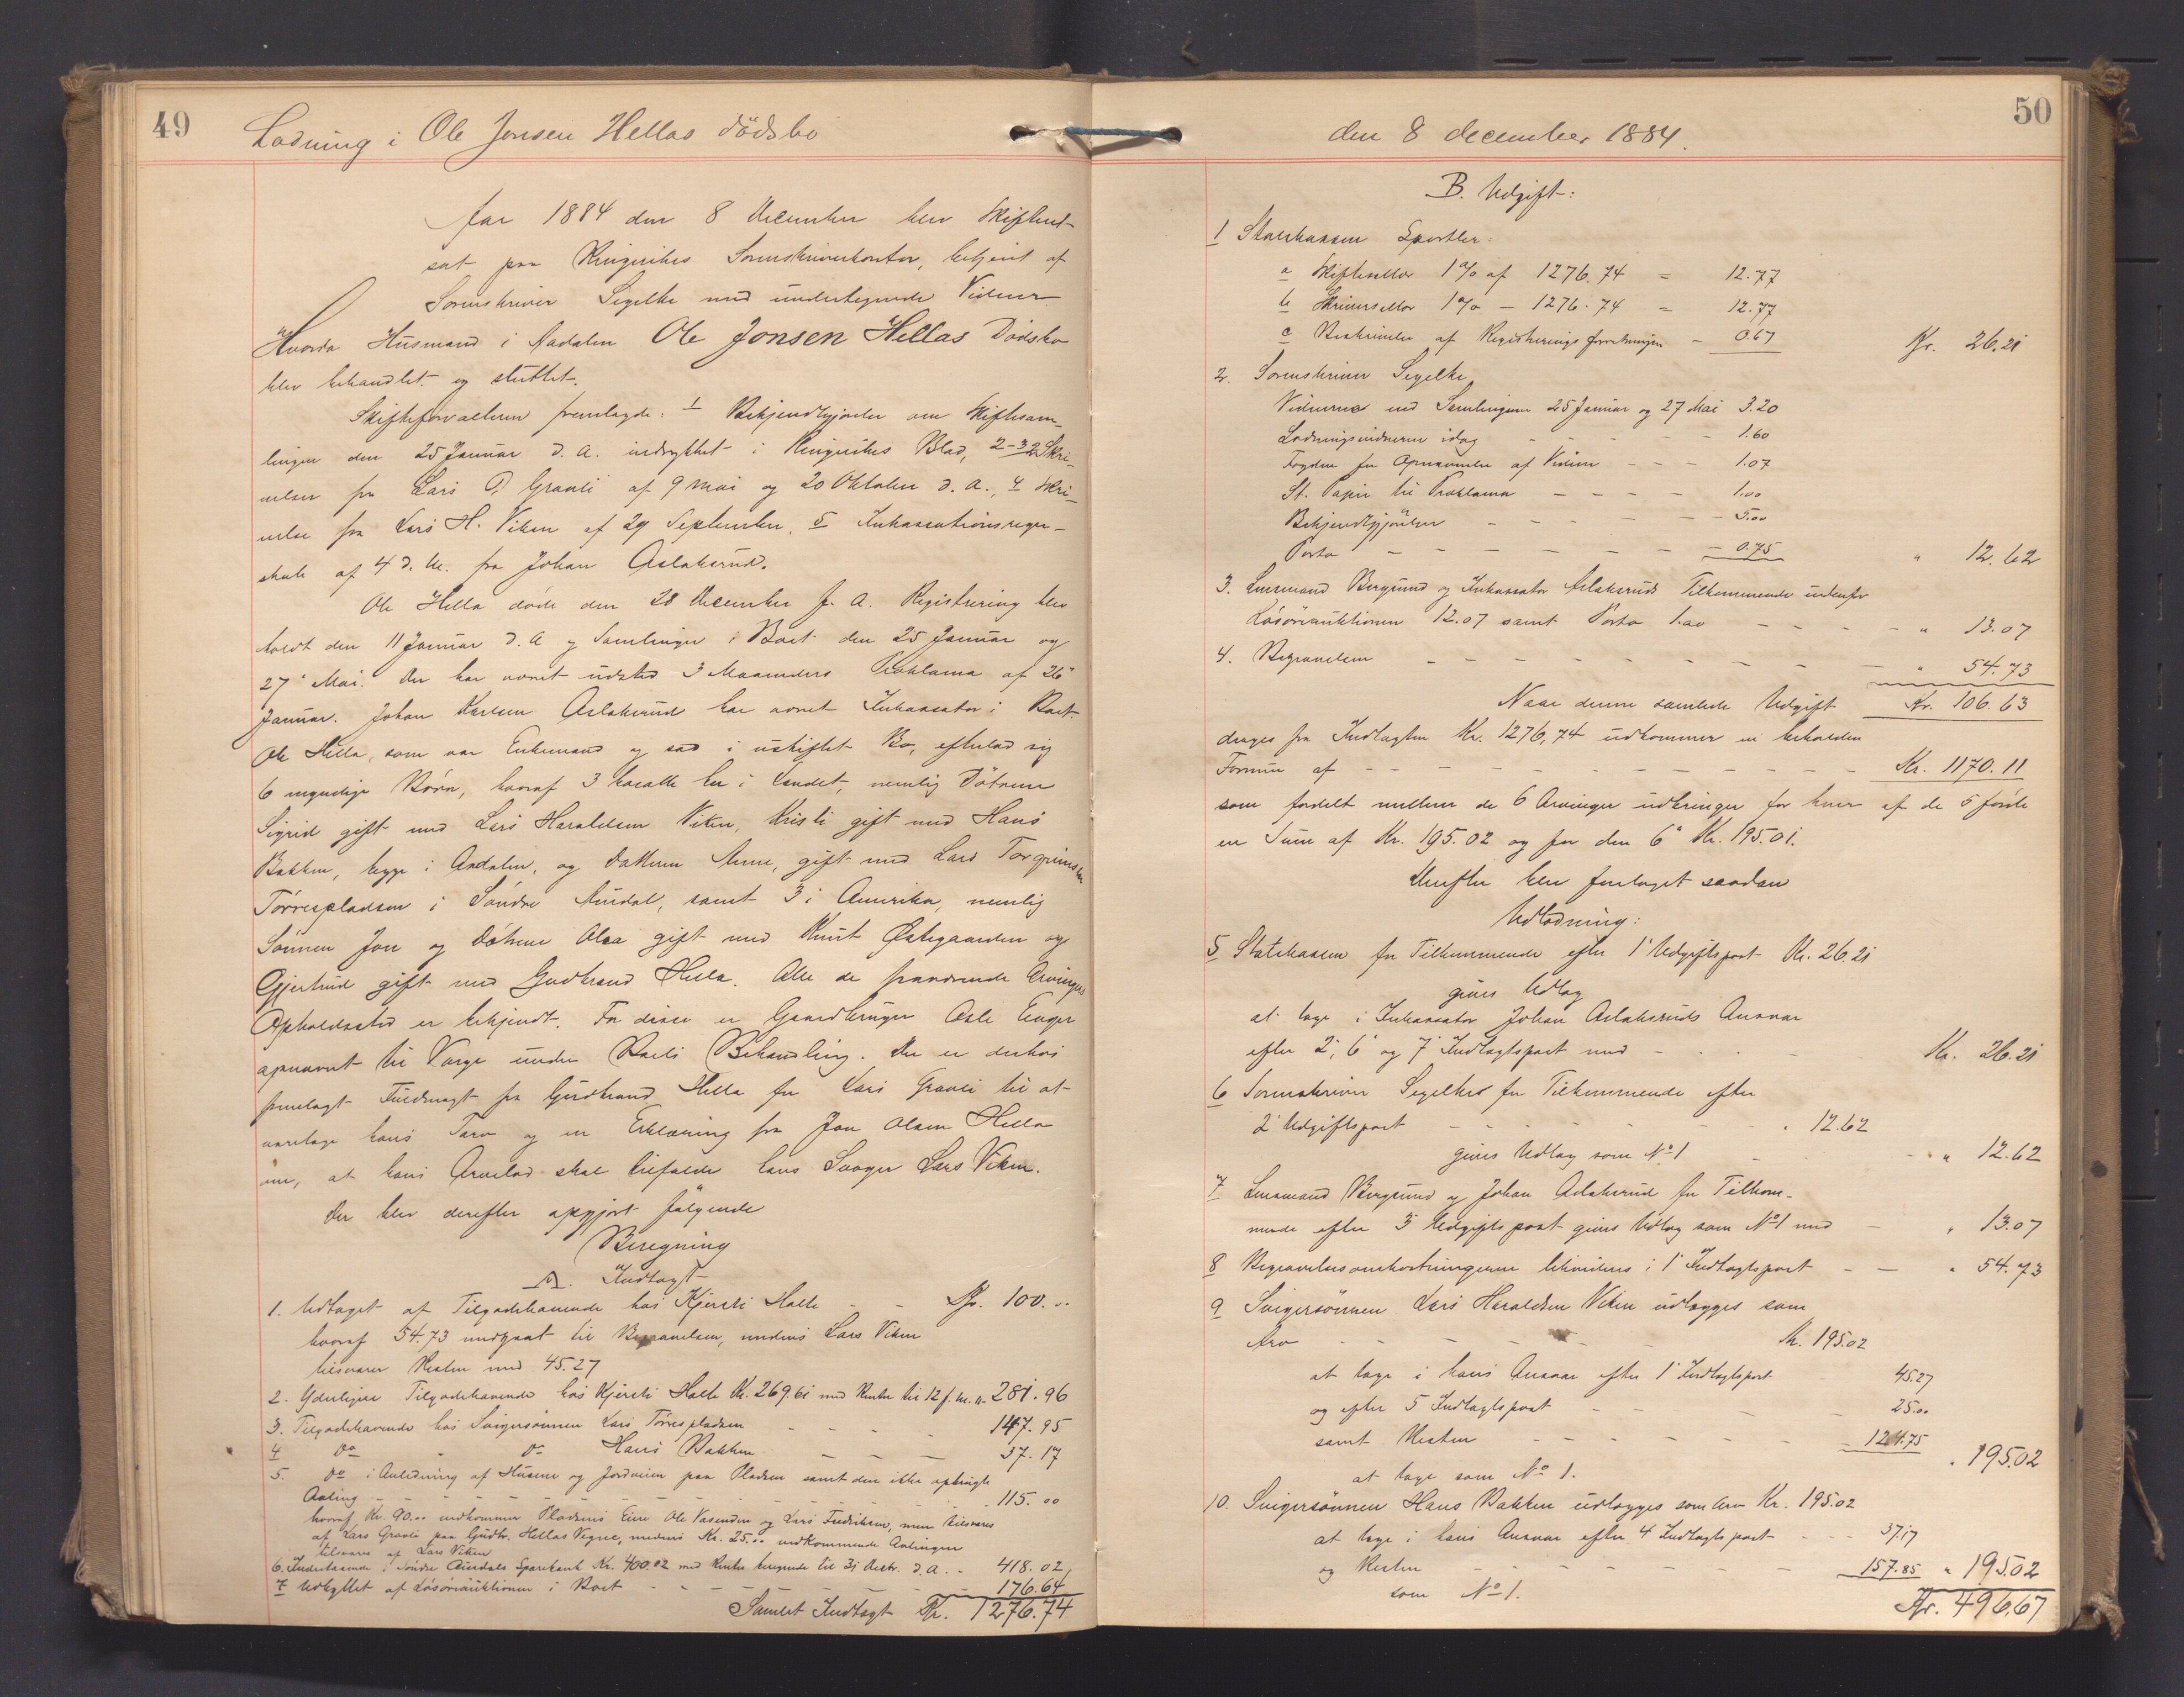 49
Lodning i Ole Jonsen Hellas dödsbo
Aar 1884 den 8 December blev Skifteret
sat paa Ringerikes Sorenskriverkontor, betjent af
Sorenskriver Segelke med undertegnede Vidner
Hvorda Husmand i Aadalen Ole Jonsen Hellas Dödsbo
blev behandlet og sluttet.
Skifteforvalteren fremlagde: 1 Bekjendtgjörelse om Skiftesam-
lingen den 25 Januar d. A. indrykket i Ringerikes Blad, 2-3 2 Skri-
velser fra Lars O. Graveli af 9 Mai og 20 Oktober d. A., 4 Skri-
velse fra Lars H. Viken af 29 September, 5 Inkassationsregn-
skab af 4 d. M. fra Johan Aslaksrud.
Ole Hella döde den 28 December f. A. Registrering blev
holdt den 11 Januar d. A. og Samlinger i Boet den 25 Januar og
27' Mai. Der har været udsted 3 Maaneders Proklama af 26'
Januar. Johan Karlsen Aslaksrud har været Inkassator i Boet.
Ole Hella, som var Enkemand og sad i uskiftet Bo, efterlod sig
6 myndige Börn, hvoraf 3 havalle her i Landet, nemlig Dötrene
Sigrid gift med Lars Haraldsen Viken, Kristi gift med Hans
Bakken, begge i Aadalen, og Datteren Anne, gift med Lars Torgrimsen
Törrespladsen i Söndre Aurdal, samt 3 i Amerika, nemlig
Sönnen Jon og Dötrene Olea gift med Knut Østegaarden og
Gjertrud gift med Gudbrand Hella. Alle de fraværende Arvingers
Opholdssted er bekjendt. For disse er Gaardbruger Asle Enger
opnævnt til Værge under Boets Behandling. Der er derhos
fremlagt Fuldmagt fra Gudbrand Hella for Lars Graveli til at
varetage hans Tarv og en Erklæring fra Jon Olsen Hella
om, at hans Arvelod skal tilfalde hans Svoger Lars Viken.
Der blev derefter opgjort fölgende
Beregning
A. Indtægt
1. Udtaget af Tilgodehavende hos Kjersti Halle - - Kr. 100.00
hvoraf 54.73 medgaat til Begravelsen, medens Lars Viken
tilsvarer Resten med 45.27
2. Yderligere Tilgodehavende hos Kjersti Halle Kr. 269.61 med Renter til 12 f. M. " 281.96
3. Tilgodehavende hos Svigersönnen Lars Törrespladsen - - - - 147.95
4 Do " Do Hans Bakken - - - 37.17
5. Do i Anledning af Husene og Jordveien paa Pladsen samt den ikke opbrugte
Avling - - - - - - - - 115.00
hvoraf Kr. 90.00 indkommer Pladsens Eiere Ole Vasenden og Lars Fredriksen, men tilsvares
af Lars Graveli paa Gudbr. Hellas Vegne, medens Kr. 25.00 vedkommende Avlingen
tilsvares af Lars Viken
6. Indestaaende i Söndre Aurdals Sparebank Kr. 400.02 med Renter beregnede til 31 Decbr. d. A. - 418.02
7 Udbyttet af Lösöreauktionen i Boet - - - - - - 176.64
Samlet Indtægt Kr. 1276.74
50
den 8 december 1884.
B. Udgift:
1 Statskassen Sportler:
a Skiftesallær 1% af 1276.74 = 12.77
b Skriversallær 1% - 1276.74 = 12.77
c Beskrivelse af Registreringsforretningen - 0.67 Kr. 26.21
2. Sorenskriver Segelke
Vidnerne ved Samlingerne 25 Januar og 27 Mai 3.20
Lodningsvidnerne idag - - - - 1.60
Fogden for Opnævnelse af Vidner - - - 1.07
St. Papir til Proklama - - - - 1.00
Bekjendtgjörelser - - - - - 5.00
Porto - - - - - - - 0.75 " 12.62
3. Lensmand Bergsund og Inkassator Aslaksruds Tilkommende udenfor
Lösöreauktionen 12.07 samt Porto 1.00 - - - - - " 13.07
4. Begravelsen - - - - - - - - " 54.73
Naar denne samlede Udgift Kr. 106.63
drages fra Indtægten Kr. 1276,74 udkommer en beholden
Formue af - - - - - - - - Kr. 1170.11
som fordelt mellem de 6 Arvinger udbringer for hver af de 5 förste
en Sum af Kr. 195.02 og for den 6' Kr. 195.01.
Derefter blev foretaget saadan
Udlodning:
5 Statskassen for Tilkommende efter 1' Udgiftspost Kr. 26.21
gives Udlæg
at tage i Inkassator Johan Aslaksruds Ansvar
efter 2', 6' og 7' Indtægtspost med - - - Kr. 26.21
6 Sorenskriver Segelkes for Tilkommende efter
2' Udgiftspost - - - - - " 12.62
gives Udlæg som No 1 - - " 12.62
7 Lensmand Bergsund og Johan Aslaksrud for Tilkom-
mende efter 3' Udgiftspost gives Udlæg som No 1 med - " 13.07
8 Begravelsesomkostningerne likvideres i 1' Indtægtspost - - " 54.73
9 Svigersönnen Lars Haraldsen Viken udlægges som
Arv - - - - - Kr. 195.02
at tage i hans Ansvar efter 1' Indtægtspost 45.27
og efter 5 Indtægtspost - - - 25.00
samt Resten - - - - - - 124.75
at tage som No 1. " 195.02
10. Svigersönnen Hans Bakken udlægges som Arv Kr. 195.02
at tage i hans Ansvar efter 4 Indtægtspost - - - 37.17
og Resten - - - - - - 157.85 " 195.02
som No 1. Kr. 496.67